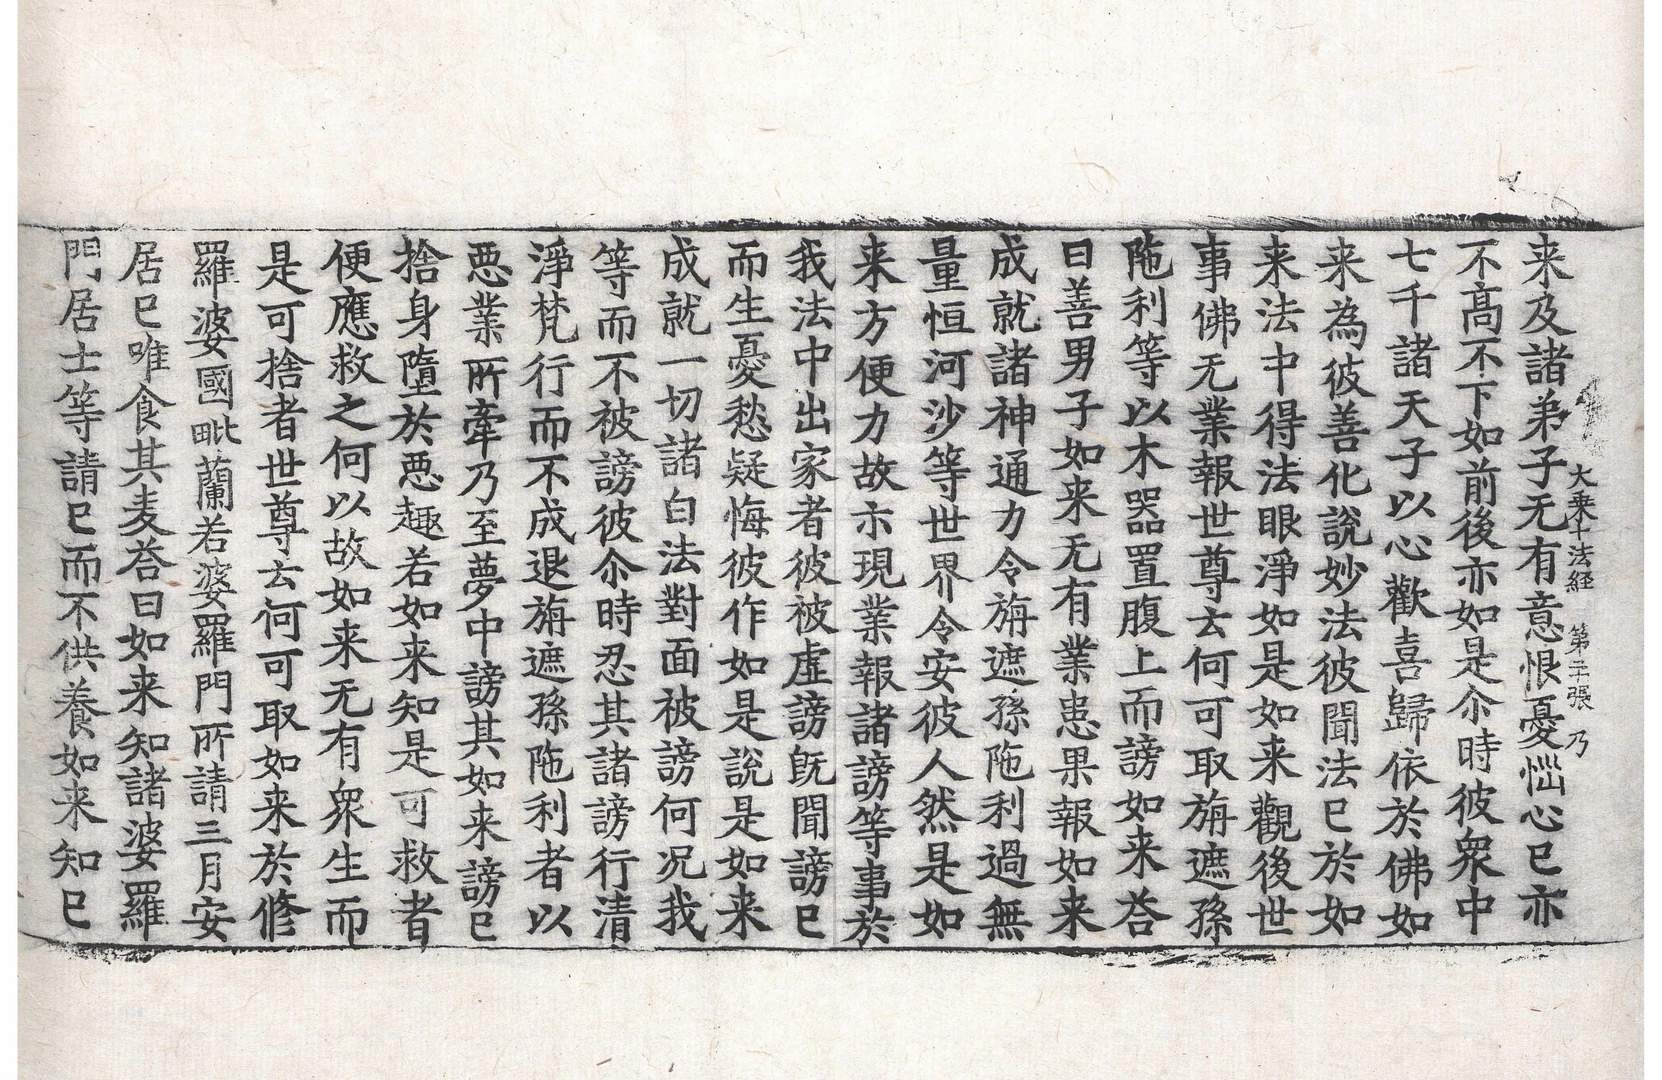 大乘十法経 第二十張 乃
来及諸弟子无有意恨憂惱心已亦
不髙不下如前後亦如是尒時彼衆中
七千諸天子以心歡喜歸依於佛如
来為彼善化說妙法彼聞法已於如
来法中得法眼淨如是如来觀後世
事佛无業報世尊云何可取旃遮孫
陁利等以木器置腹上而謗如来荅
曰善男子如来无有業患果報如来
成就諸神通力令旃遮孫陁利過無
量恒河沙等世界令安彼人然是如
来方便力故示現業報諸謗等事於
我法中出家者彼被虛謗旣聞謗已
而生憂愁疑悔彼作如是說是如来
成就一切諸白法對面被謗何况我
等而不被謗彼尒時忍其諸謗行清
淨梵行而不成退旃遮孫陁利者以
惡業所牽乃至夢中謗其如来謗已
捨身墮於惡趣若如来知是可救者
便應救之何以故如来无有衆生而
是可捨者世尊云何可取如来於修
羅婆國毗蘭若婆羅門所請三月安
居已唯食其麦荅曰如来知諸婆羅
門居士等請已而不供養如来知已